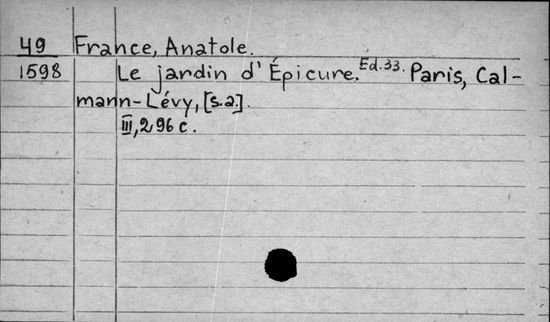 49 France, Anatole.
1598 Le jardin d' Épicure. Ed. 33. Paris, Cal-
mann-Lévy, [s.a.].
III, 296 c.